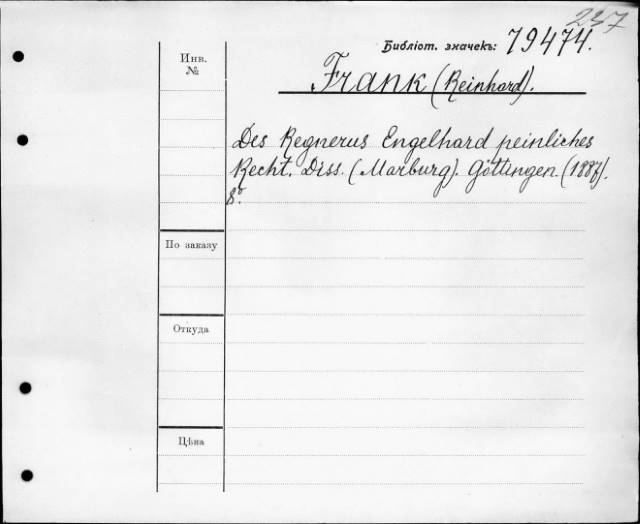 237
Библіот. значекъ: 79474.
Инв.
№
Frank (Reinhard).
Des Regnerus Engelhard peinliches
Recht. Diss. (Marburg). Göttingen. (1887).
8º.
По заказу
Откуда
Цѣна